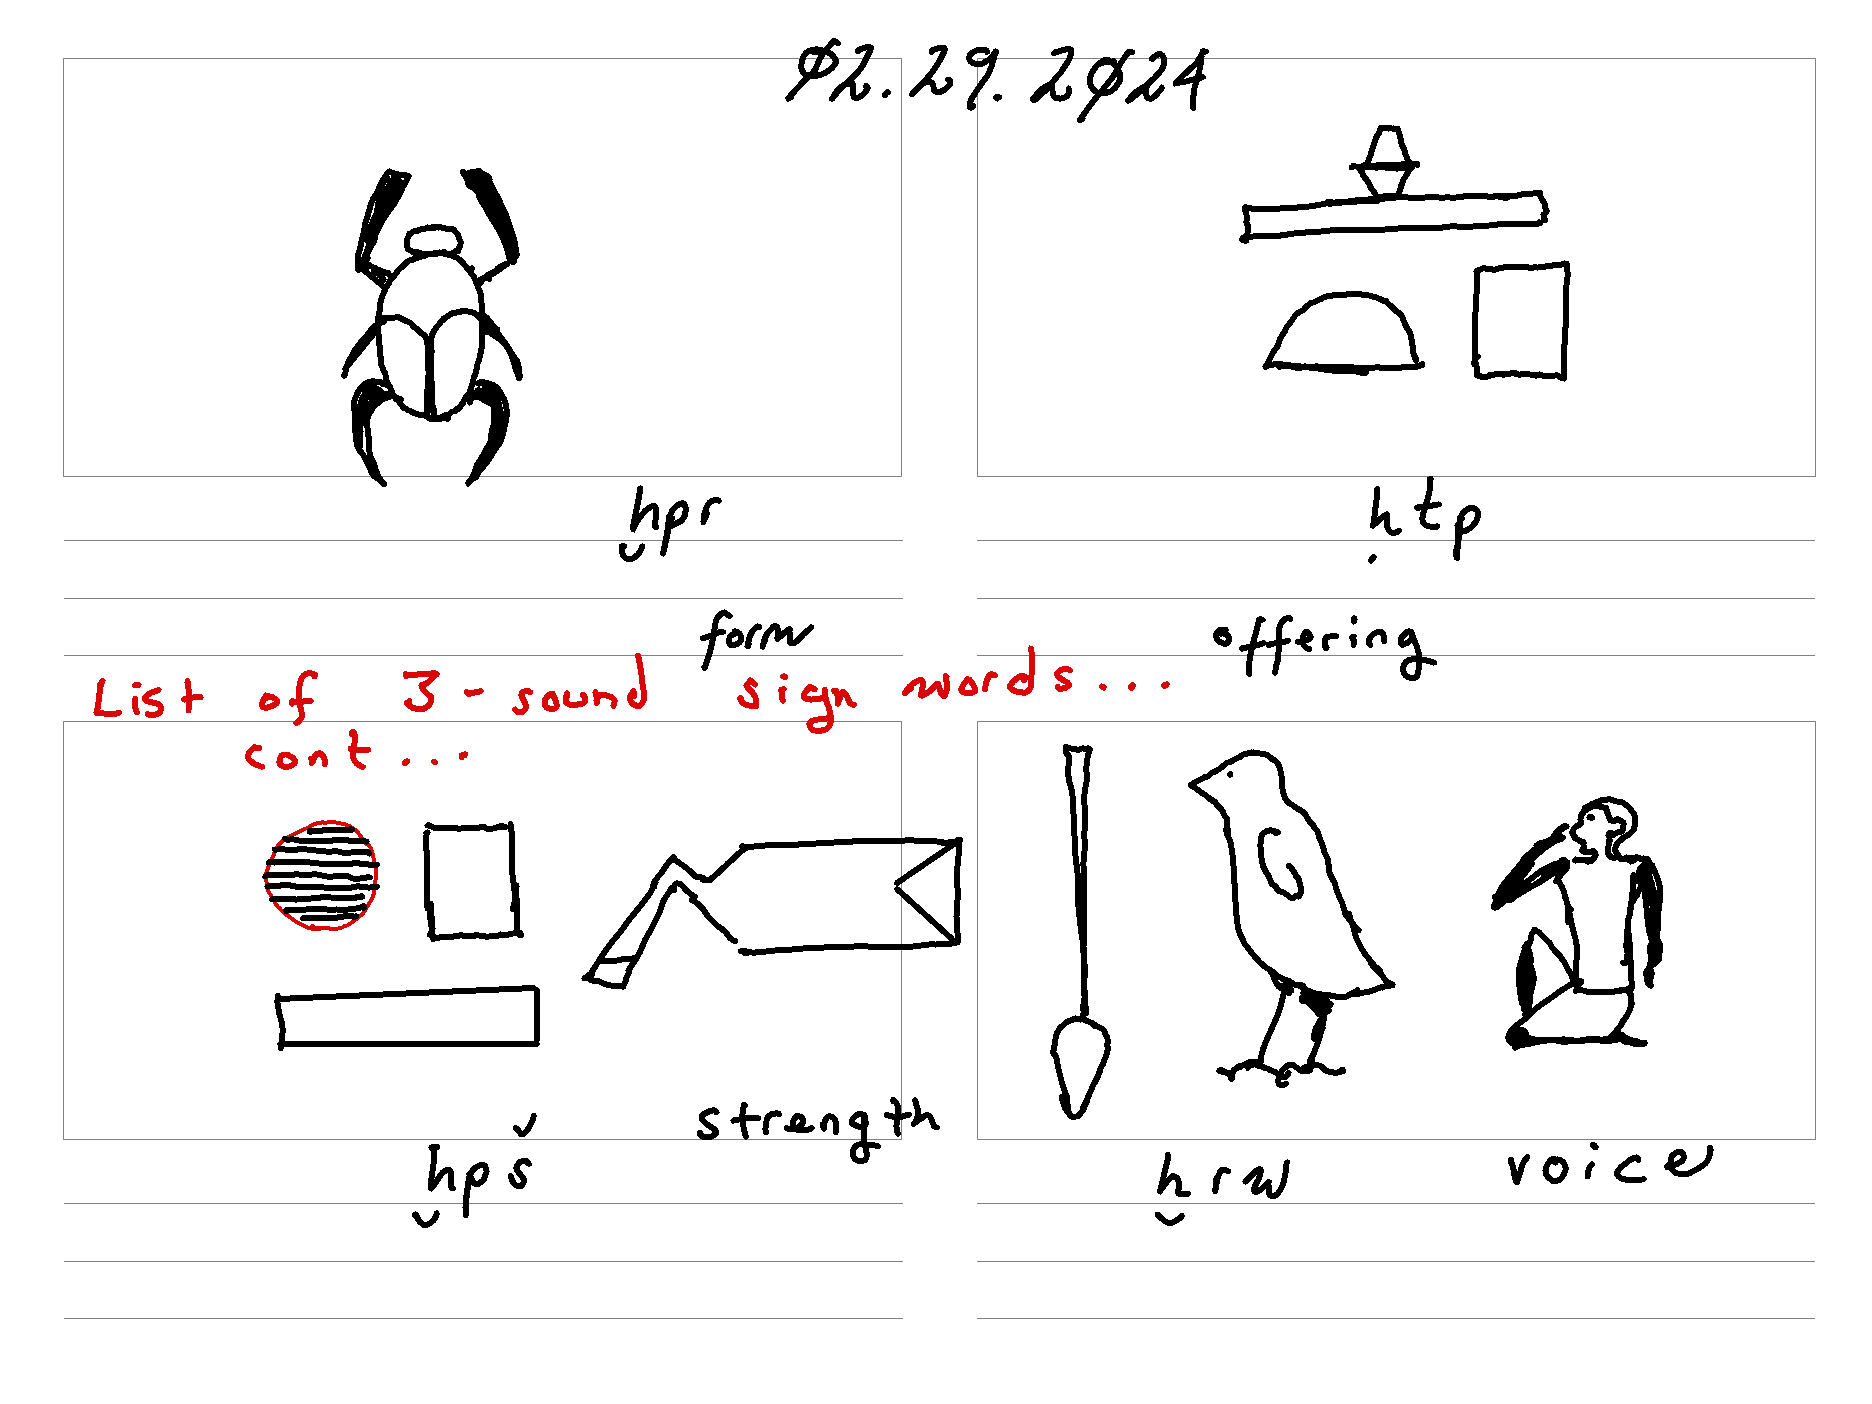 02.29.2024
ḫpr
ḥtp
form
offering
List of 3-sound sign words...
cont...
strength
ḫpš
ḫrw
voice